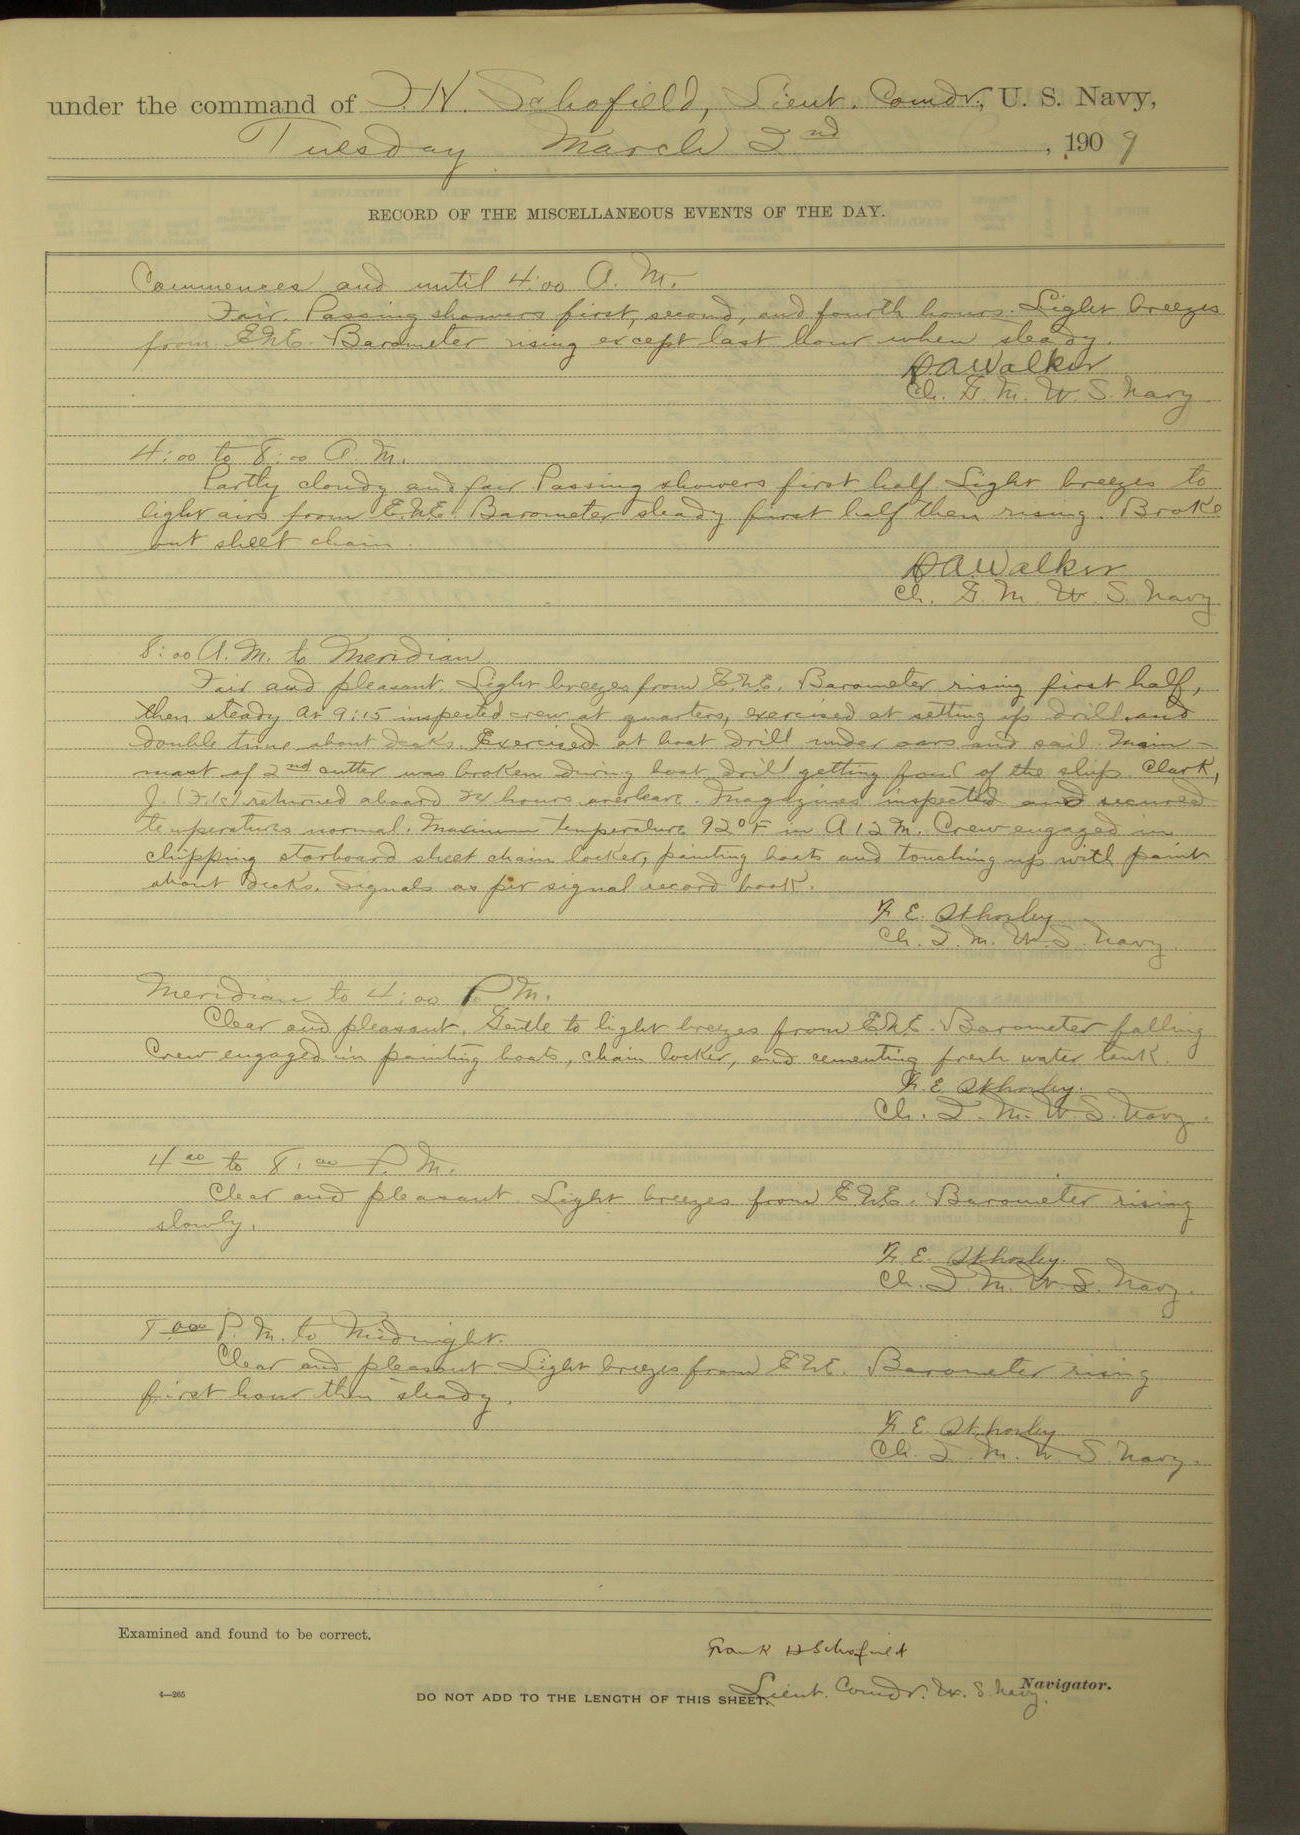 under the command of F. H. Schofield, Lieut. Comdr., U. S. Navy,
Tuesday March 2nd, 1909
RECORD OF THE MISCELLANEOUS EVENTS OF THE DAY.
Commences and until 4:00 A. M.
Fair. Passing showers first, second, and fourth hours. Light breezes
from E.N.E. Barometer rising except last hour when steady.
A Walker
Ch. G. M. U. S. Navy.
4:00 to 8:00 A. M.
Partly cloudy and fair Passing showers first half. Light breezes to
light airs from E.N.E. Barometer steady first half then rising. Broke
out sheet chain.
A Walker
Ch. G. M. U. S. Navy
8:00 A. M. to Meridian
Fair and pleasant. Light breezes from E.N.E. Barometer rising first half,
then steady At 9:15 inspected crew at quarters, exercised at setting up drill and
double time about decks. Exercised at boat drill under oars and sail. Main-
mast of 2nd cutter was broken during boat drill getting foul of the ship. Clark,
J. returned aboard 24 hours overleave. Magazines inspected and secured
temperatures normal. Maximum temperature 92°F in A 12 M. Crew engaged in
chipping starboard sheet chain locker, painting boats and touching up with paint
about decks. Signals as per signal record book.
F. E.
Ch. G. M. U. S. Navy.
Meridian to 4:00 P. M.
Clear and pleasant. Gentle to light breezes from E.N.E. Barometer falling
Crew engaged in painting boats, chain locker, and cementing fresh water tank.
F. E.
Ch. G. M. U. S. Navy.
4 00 to 8. 00 P. M.
Clear and pleasant. Light breezes from E.N.E. Barometer rising
slowly.
F. E.
Ch. G. M. U. S. Navy.
8 00 P. M. to Midnight.
Clear and pleasant. Light breezes from E.N.E. Barometer rising
first hour then steady.
F. E.
Ch. G. M. U. S. Navy.
Examined and found to be correct.
Frank H Schofield
Lieut. Comdr. U. S. Navy. Navigator.
4—265
DO NOT ADD TO THE LENGTH OF THIS SHEET.